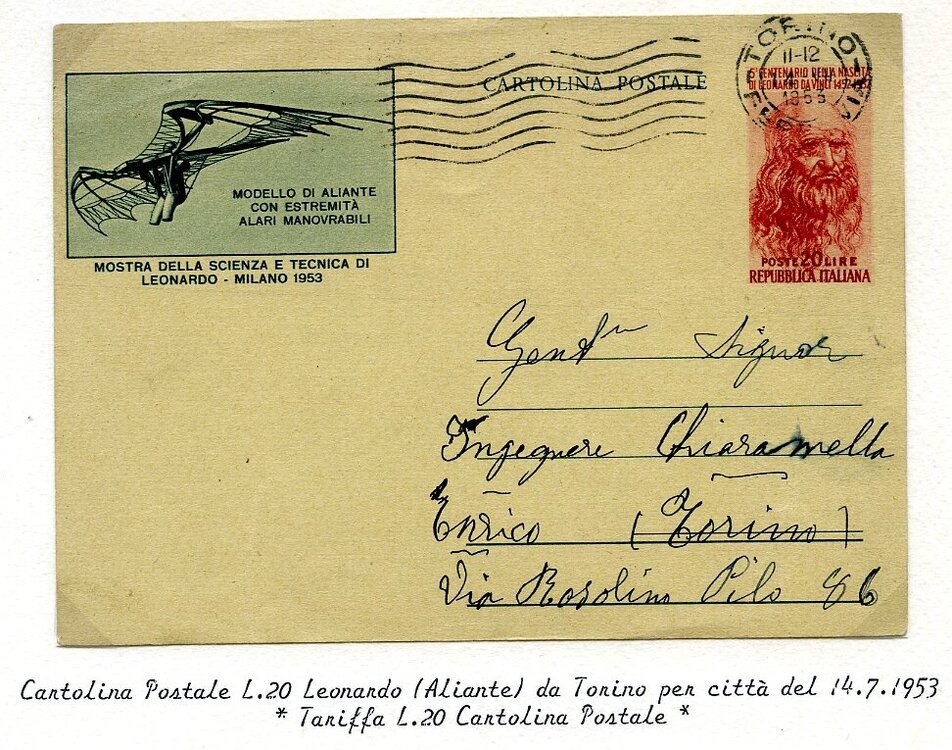 CARTOLINA POSTALE
TORINO
11-12
1953
5° CENTENARIO DELLA NASCITA
DI LEONARDO DA VINCI 1452-1952
POSTE 20 LIRE
REPUBBLICA ITALIANA
MODELLO DI ALIANTE
CON ESTREMITÀ
ALARI MANOVRABILI
MOSTRA DELLA SCIENZA E TECNICA DI
LEONARDO - MILANO 1953
Gent Signor
Ingegnere Chiaramella
Enrico (Torino)
Via Rosolino Pilo 86
Cartolina Postale L.20 Leonardo (Aliante) da Torino per città del 14.7.1953
* Tariffa L.20 Cartolina Postale *